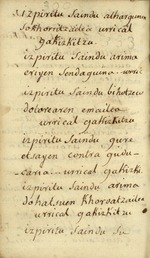 izpiritu saindu alhargunen
Sokhorritzailea urrical
gakizkitzu
izpiritu saindu arima
eriyen Sendaguina urri
izpiritu saindu bihotzeco
dolorearen emailea
urrical gakizkitzu
izpiritu saindu gure
etsayen contra gudu-
caria urrical gakizki.
izpiritu saindu arima
dohatsuen khoroatzailea
urrical gakizkitzu
izpiritu saindu